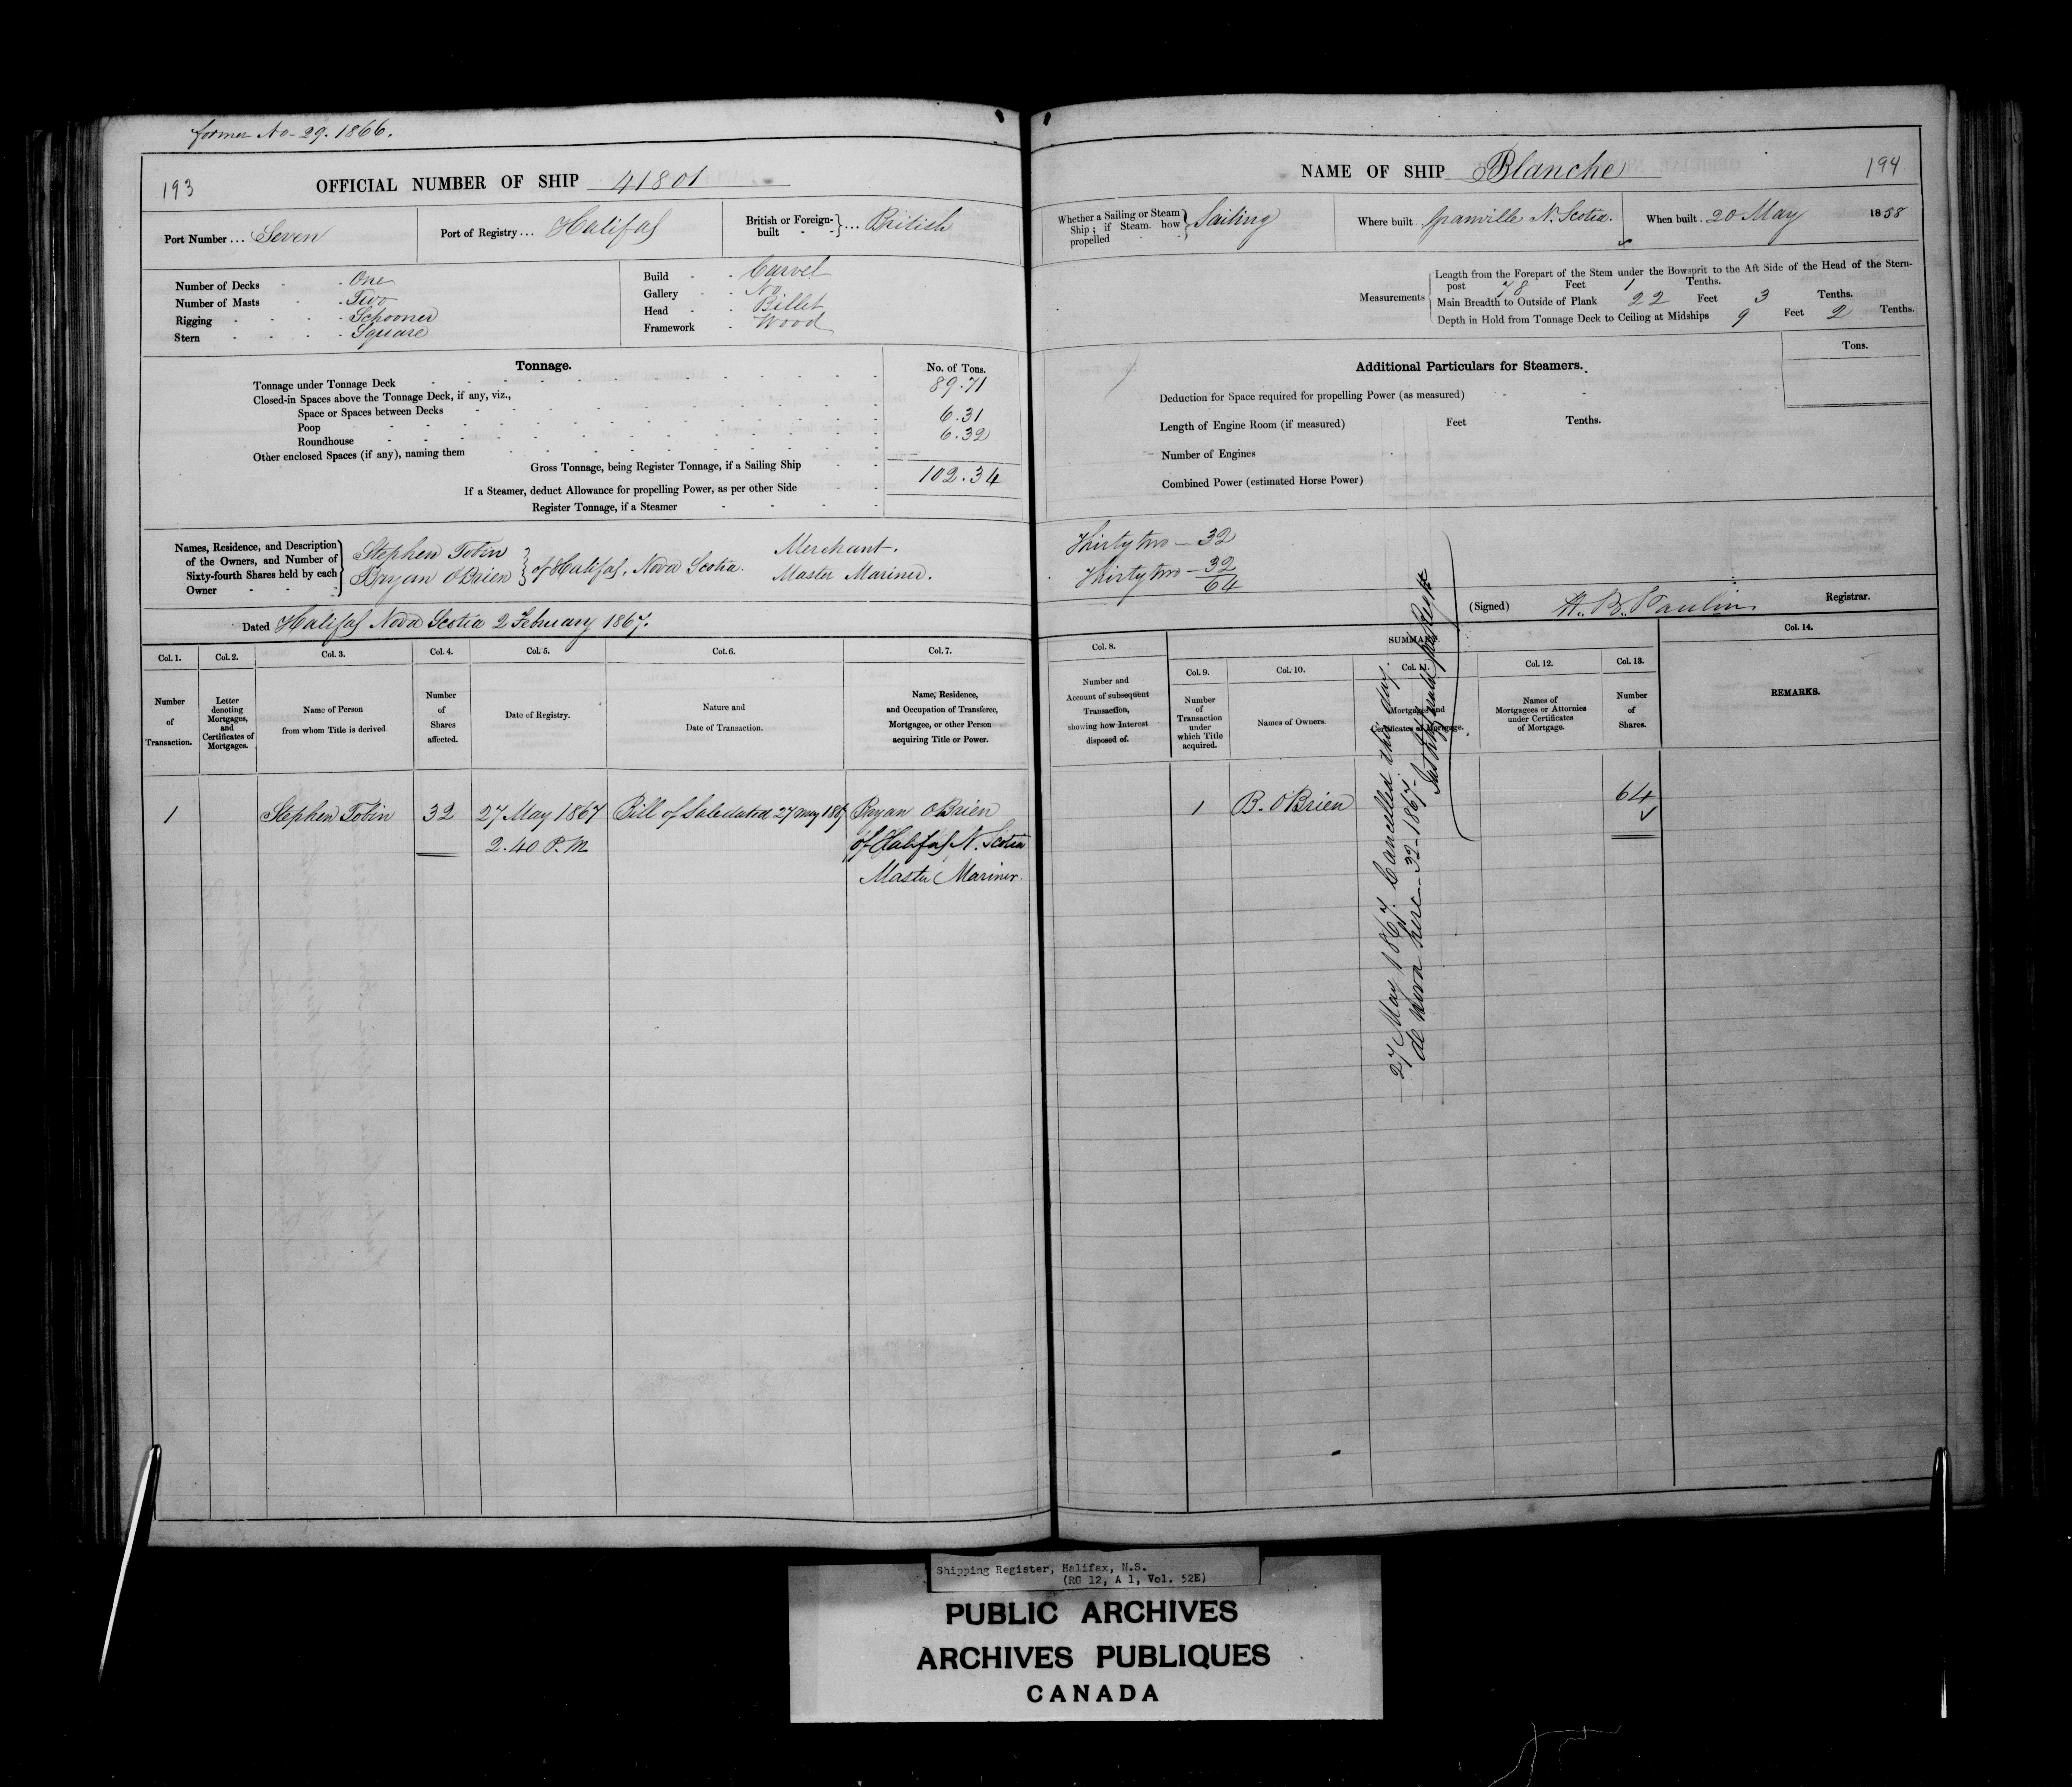 former No-29. 1866.
193
OFFICIAL NUMBER OF SHIP 41801
Port Number ... Seven
Port of Registry ... Halifax
British or Foreign-built ... British
Number of Decks One
Number of Masts Two
Rigging Schooner
Stern Square
Build Carvel
Gallery No
Head Billet
Framework Wood
Tonnage.
No. of Tons.
Tonnage under Tonnage Deck 89.71
Closed-in Spaces above the Tonnage Deck, if any, viz.,
Space or Spaces between Decks
Poop 6.31
Roundhouse 6.32
Other enclosed Spaces (if any), naming them
Gross Tonnage, being Register Tonnage, if a Sailing Ship 102.34
If a Steamer, deduct Allowance for propelling Power, as per other Side
Register Tonnage, if a Steamer
Names, Residence, and Description
of the Owners, and Number of
Sixty-fourth Shares held by each
Owner
Stephen Tobin
Bryan OBrien
of Halifax, Nova Scotia.
Merchant.
Master Mariner.
Dated Halifax Nova Scotia 2 February 1867.
Col. 1.
Number
of
Transaction.
Col. 2.
Letter
denoting
Mortgages,
and
Certificates of
Mortgages.
Col. 3.
Name of Person
from whom Title is derived
Col. 4.
Number
of
Shares
affected.
Col. 5.
Date of Registry.
Col. 6.
Nature and
Date of Transaction.
Col. 7.
Name, Residence,
and Occupation of Transferee,
Mortgagee, or other Person
acquiring Title or Power.
1 Stephen Tobin 32 27 May 1867 Bill of Sale dated 27 May 1867 Bryan OBrien
2.40 P.M of Halifax N. Scotia
Master Mariner.
NAME OF SHIP Blanche
194
Whether a Sailing or Steam
Ship; if Steam, how
propelled
Sailing
Where built Granville N. Scotia.
When built 20 May 1858
Measurements
Length from the Forepart of the Stem under the Bowsprit to the Aft Side of the Head of the Stern-
post 78 Feet 1 Tenths.
Main Breadth to Outside of Plank 22 Feet 3 Tenths.
Depth in Hold from Tonnage Deck to Ceiling at Midships 9 Feet 2 Tenths.
Additional Particulars for Steamers.
Tons.
Deduction for Space required for propelling Power (as measured)
Length of Engine Room (if measured) Feet Tenths.
Number of Engines
Combined Power (estimated Horse Power)
Thirty two - 32
Thirty two - 32
64
(Signed) H. B. Paulin. Registrar.
Col. 8.
Number and
Account of subsequent
Transaction,
showing how Interest
disposed of.
SUMMARY.
Col. 9.
Number
of
Transaction
under
which Title
acquired.
Col. 10.
Names of Owners.
Col. 11.
Mortgages and
Certificates of Mortgage.
Col. 12.
Names of
Mortgagees or Attornies
under Certificates
of Mortgage.
Col. 13.
Number
of
Shares.
Col. 14.
REMARKS.
1 B. O'Brien 64
27 May 1867. Cancelled this day.
de novo here - 32-1867-
Shipping Register, Halifax, N.S.
(RG 12, A 1, Vol. 52E)
PUBLIC ARCHIVES
ARCHIVES PUBLIQUES
CANADA